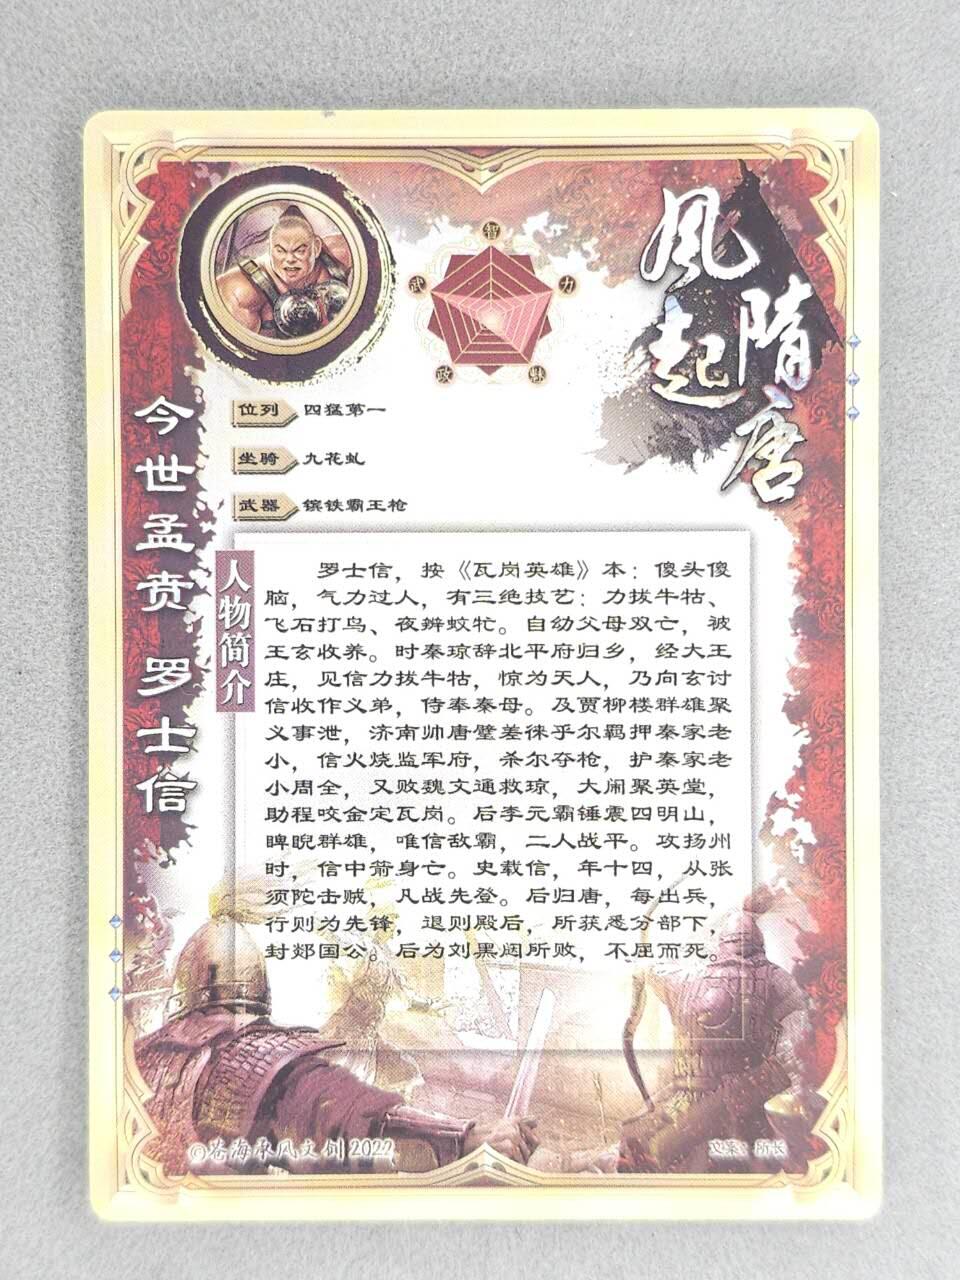 風起
隋唐
智
武
力
政
魅
位列 四猛第一
坐骑 九花虬
武器 镔铁霸王枪
今世孟贲 罗士信
人物简介
罗士信，按《瓦岗英雄》本：傻头傻
脑，气力过人，有三绝技艺：力拔牛牯、
飞石打鸟、夜辨蚊牤。自幼父母双亡，被
王玄收养。时秦琼辞北平府归乡，经大王
庄，见信力拔牛牯，惊为天人，乃向玄讨
信收作义弟，侍奉秦母。及贾柳楼群雄聚
义事泄，济南帅唐壁差徕乎尔羁押秦家老
小，信火烧监军府，杀尔夺枪，护秦家老
小周全，又败魏文通救琼，大闹聚英堂，
助程咬金定瓦岗。后李元霸锤震四明山，
睥睨群雄，唯信敌霸，二人战平。攻扬州
时，信中箭身亡。史载信，年十四，从张
须陀击贼，凡战先登。后归唐，每出兵，
行则为先锋，退则殿后，所获悉分部下，
封郯国公。后为刘黑闼所败，不屈而死。
©苍海承风文创 2022
文案：所长